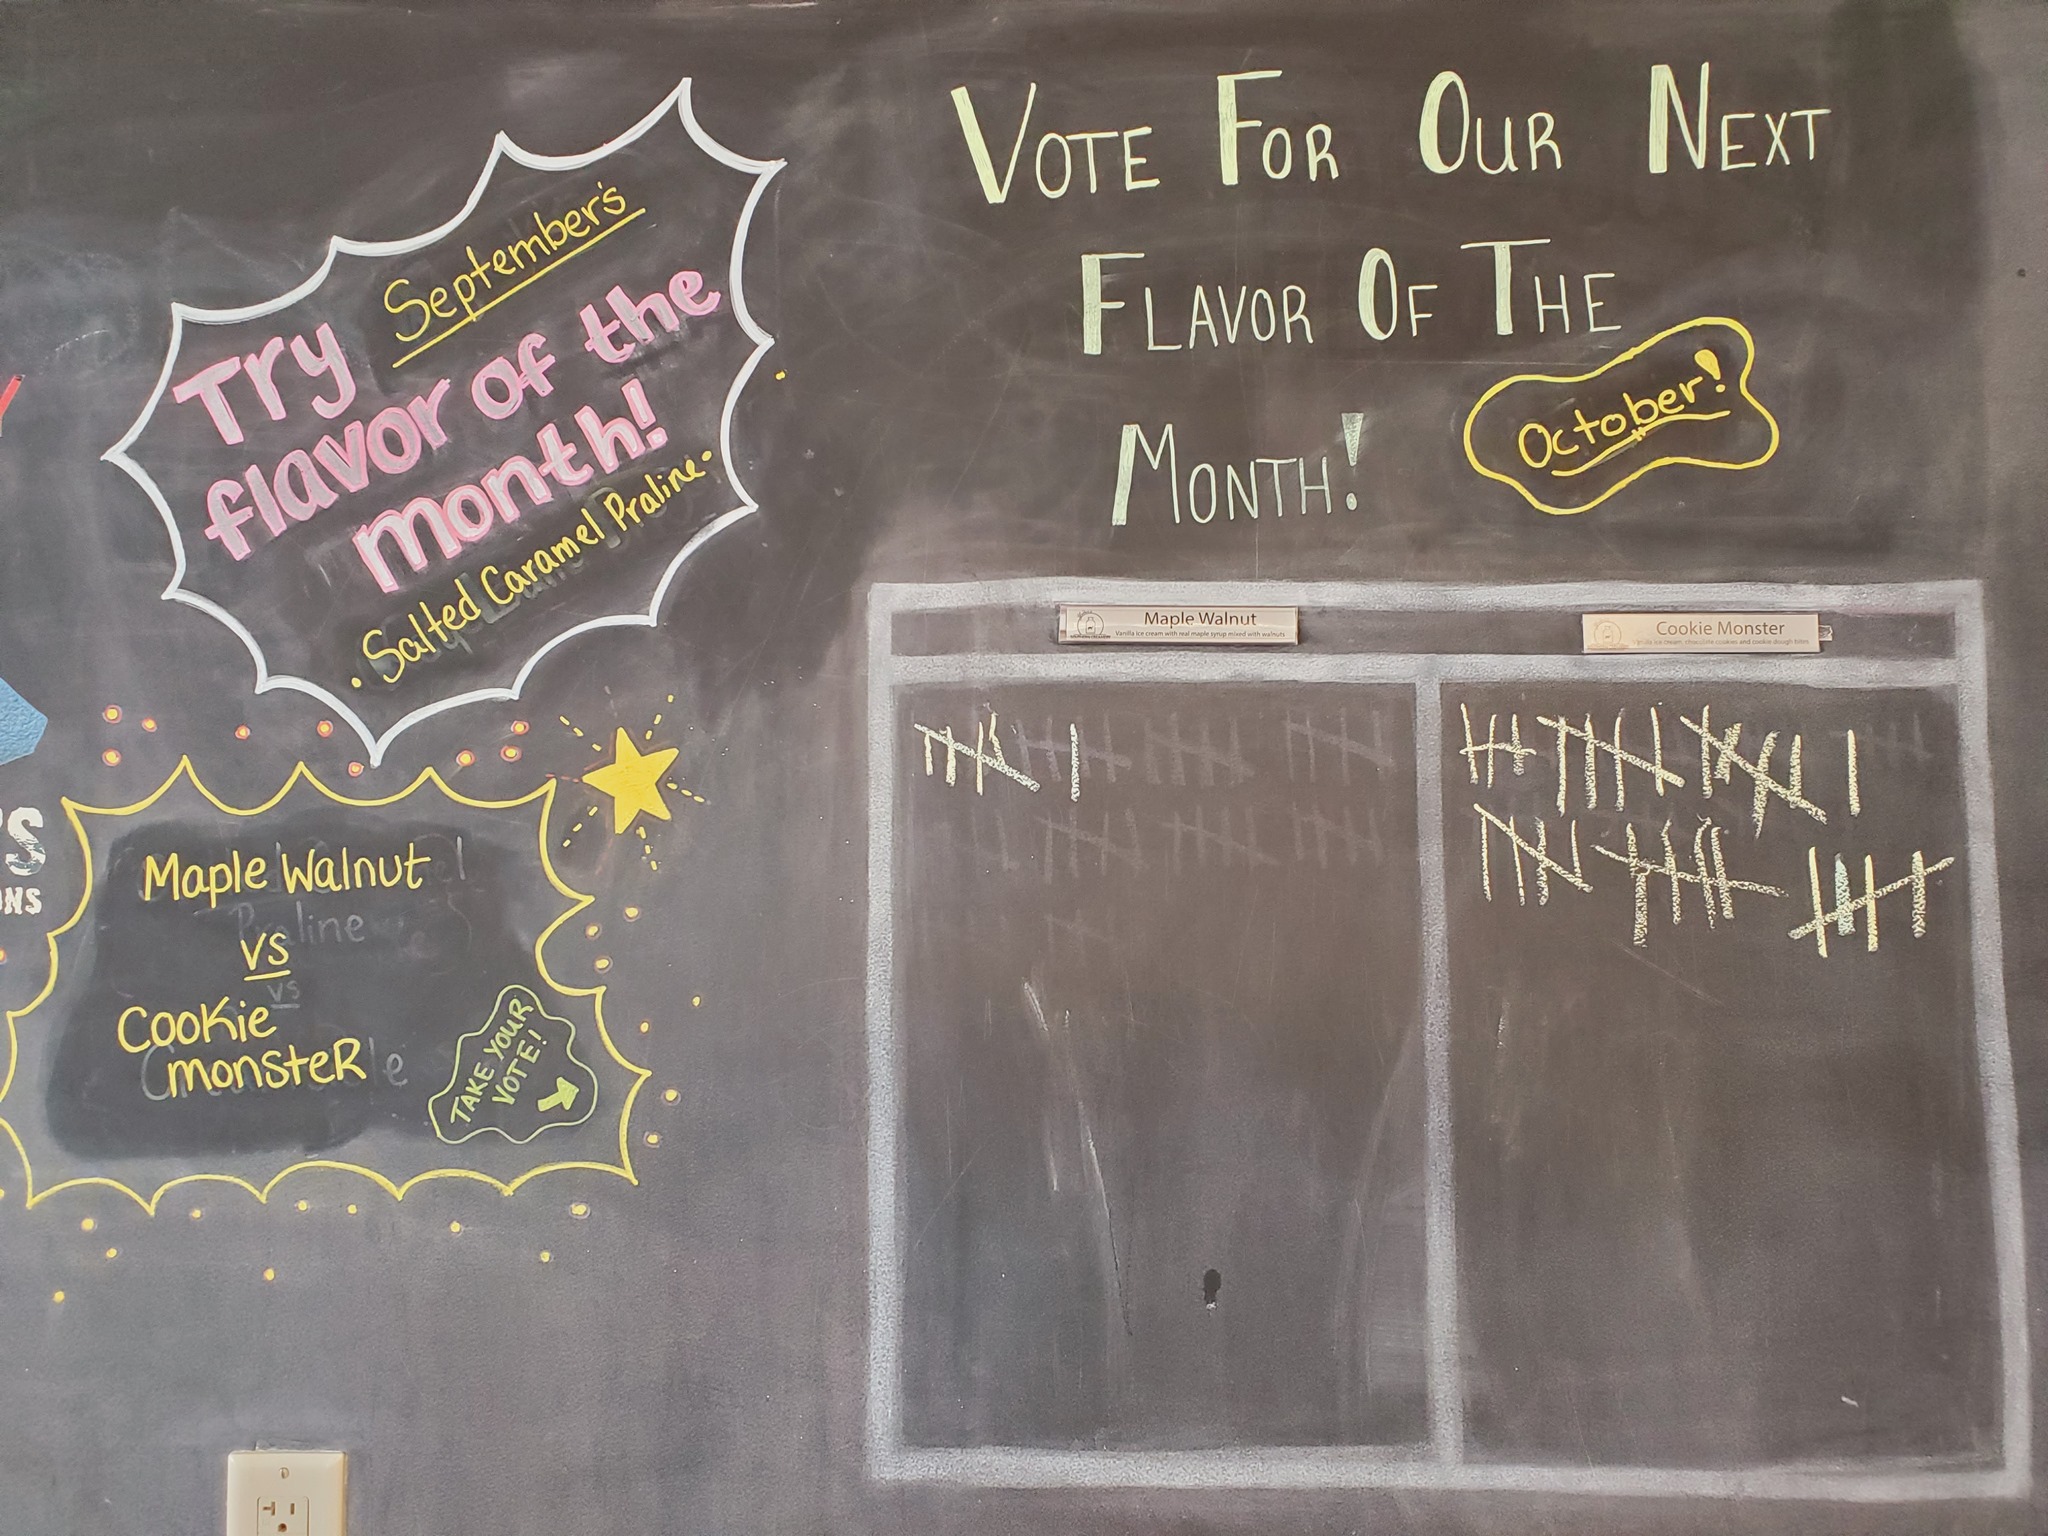 September's
Try
flavor of the
month!
• Salted Caramel Praline •
Maple Walnut
Praline
vs
vs
Cookie
monsteR
TAKE YOUR
VOTE!
'S
ONS
VOTE FOR OUR NEXT
FLAVOR OF THE
MONTH!
October!
Maple Walnut
Vanilla ice cream with real maple syrup mixed with walnuts
Cookie Monster
Vanilla ice cream, chocolate cookies and cookie dough bites